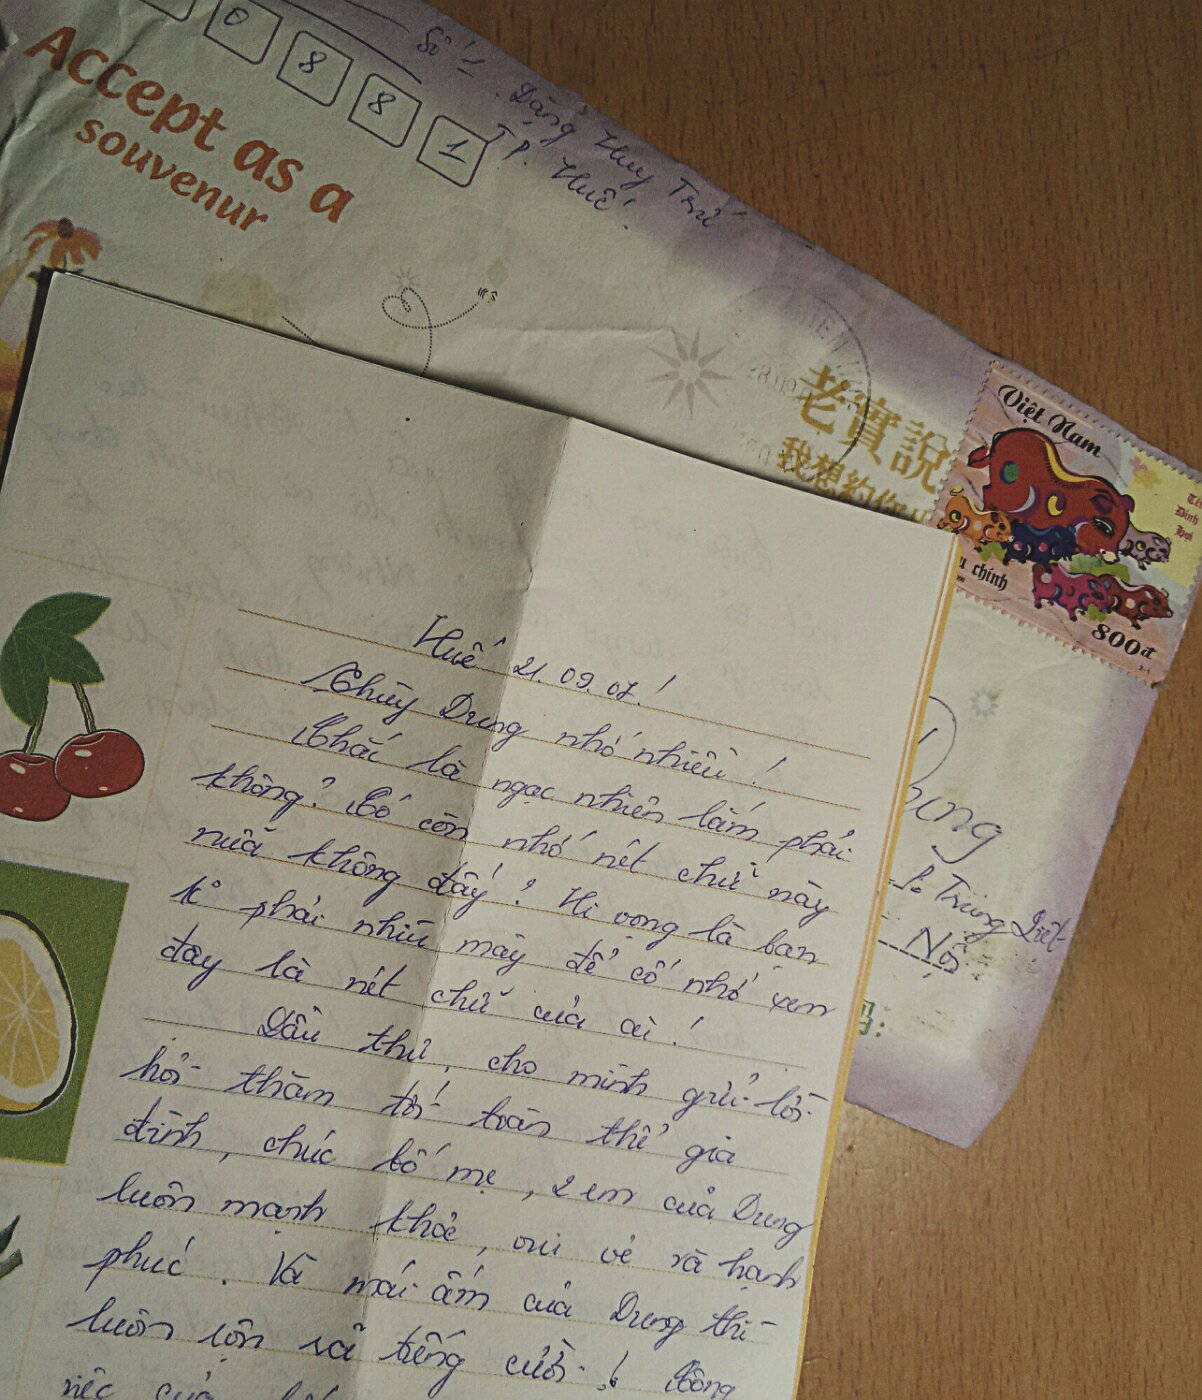 0 8 8 1
Số 1 Đặng Huy Trứ
TP. Huế.
Accept as a
souvenur
老實說
我想約你出
Việt Nam
Tết
Đinh
Hợi
chính
800đ
ung
Nội
Huế 21.09.07!
Thùy Dung nhớ nhiều!
Chắc là ngạc nhiên lắm phải
không? Có còn nhớ nét chữ này
nữa không đấy? Hi vọng là bạn
k° phải nhíu mày để cố nhớ xem
đây là nét chữ của ai!
Đầu thư, cho mình gửi lời
hỏi thăm tới toàn thể gia
đình, chúc bố mẹ, 2 em của Dung
luôn mạnh khỏe, vui vẻ và hạnh
phúc. Và mái ấm của Dung thì
luôn rộn rã tiếng cười! Công
việc của